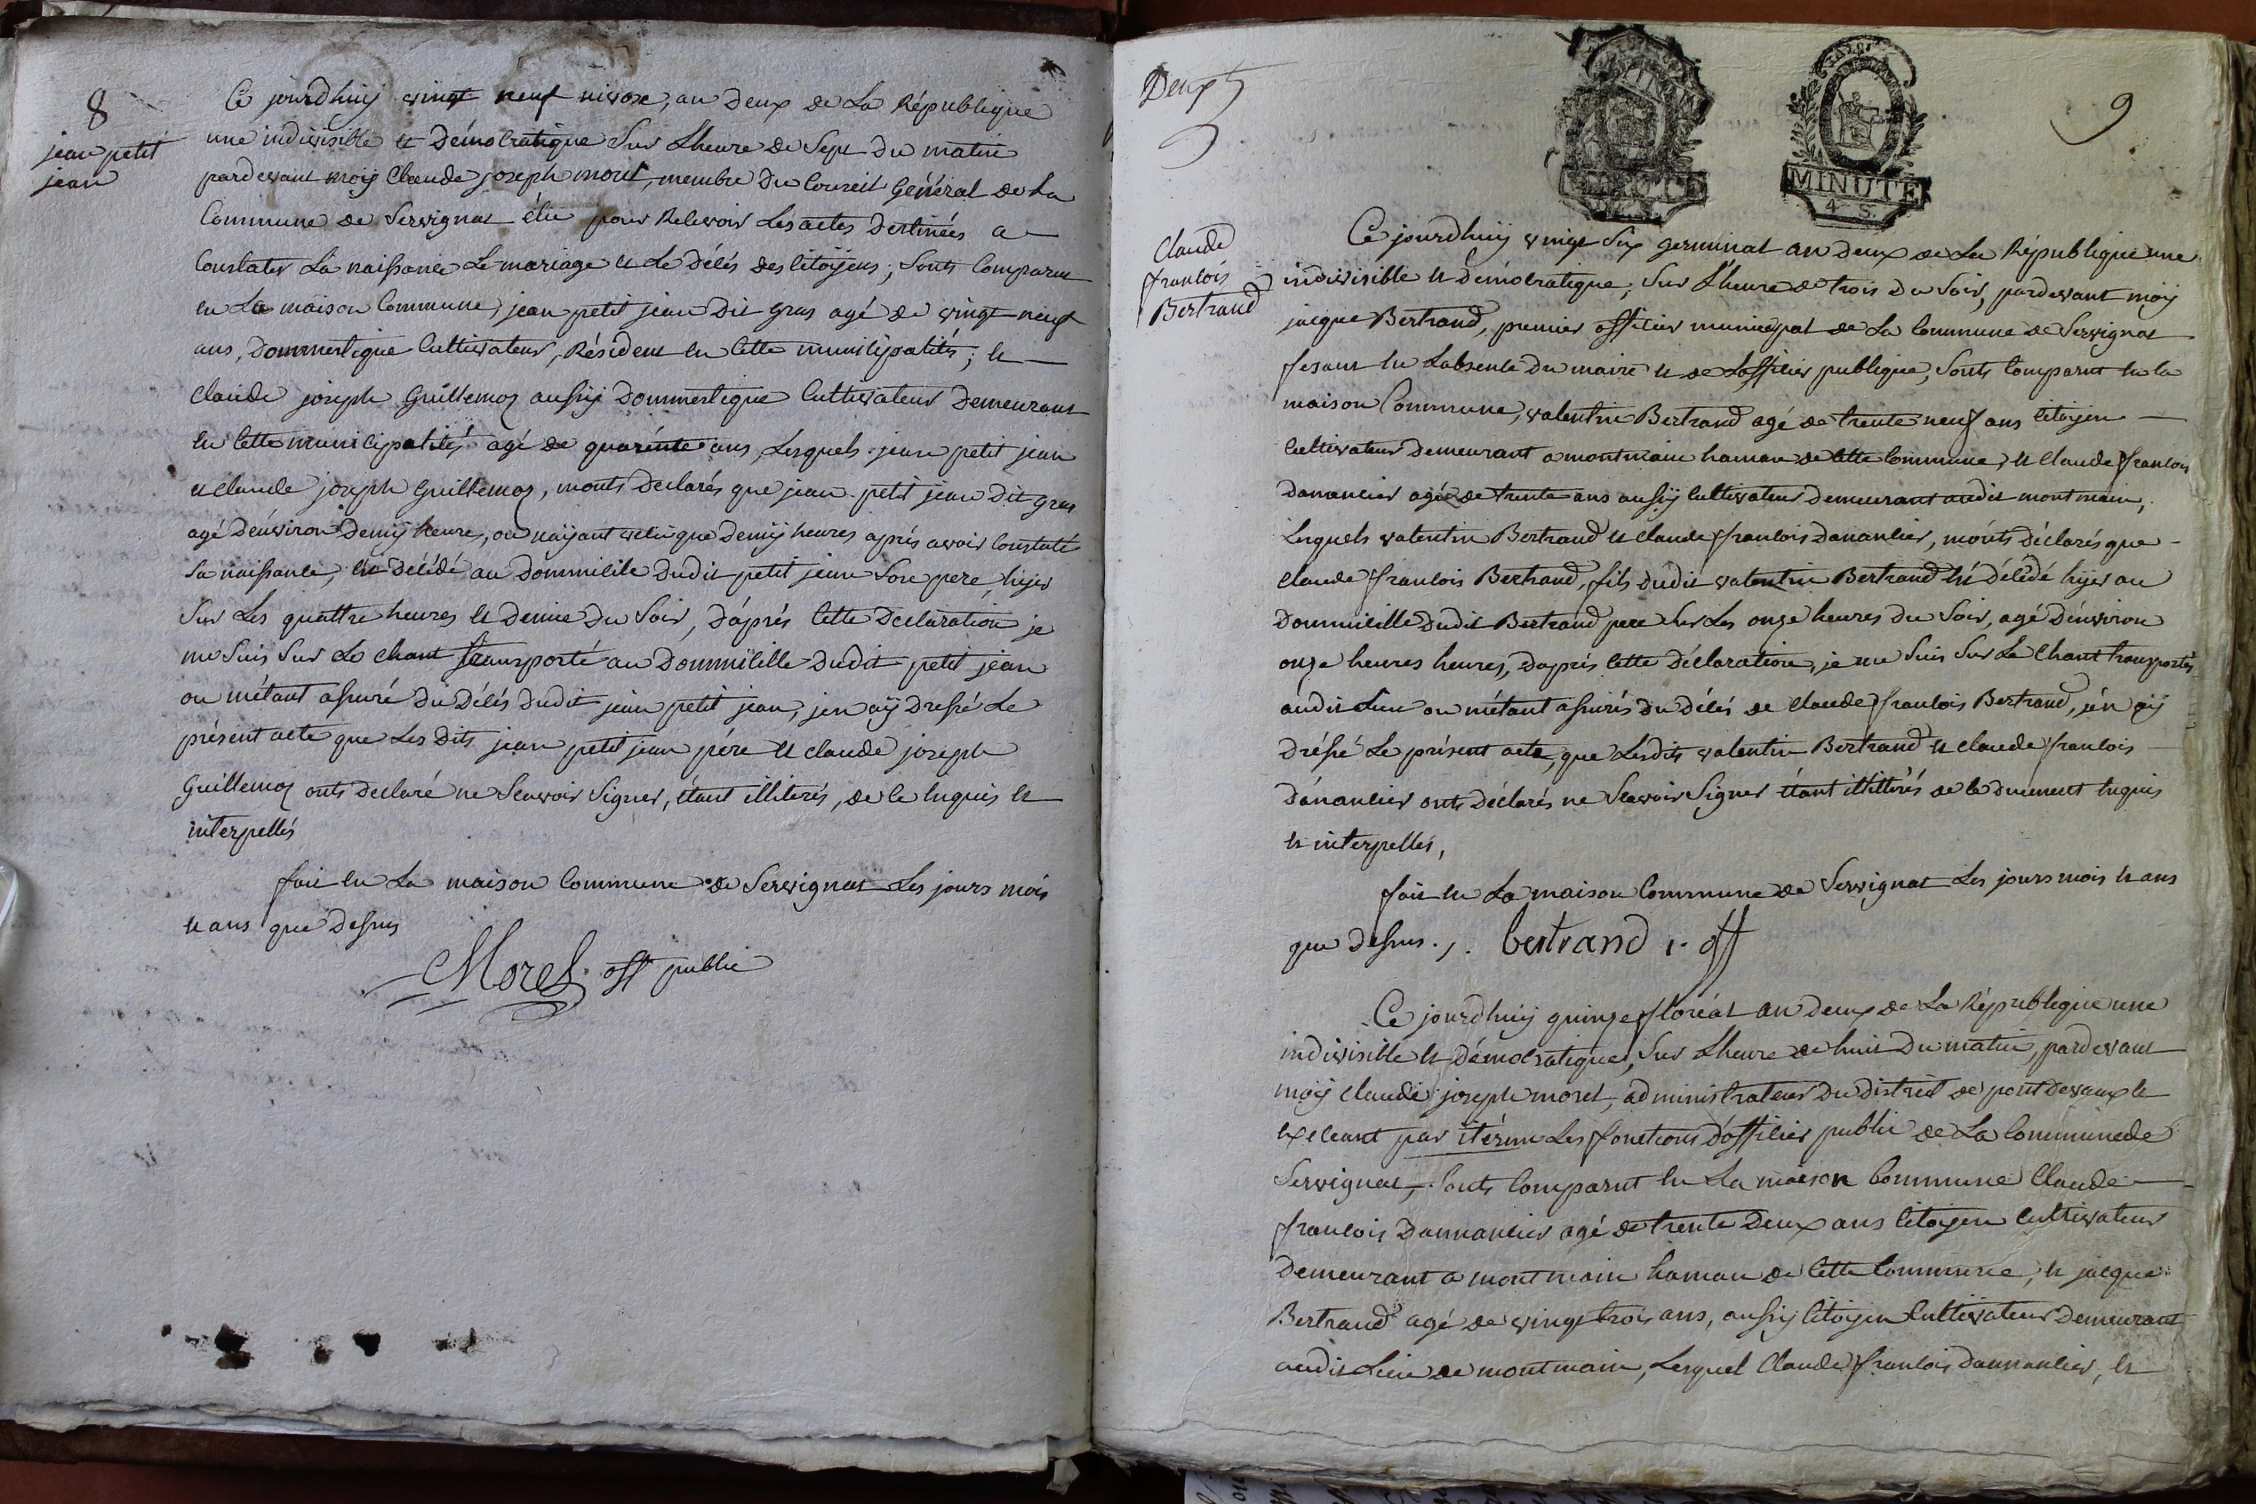 8
jean petit
jean
Ce jourdhuij vingt neuf nivose, an deux de La République
une indivisible et Démocratique Sur Lheure de Sept du matin
pardevant moij Claude joseph morel, membre du Conseil Général de La
Commune de Servignat élu pour Recevoir Les actes destinées a
Constater La naissance Le mariage et Le décés des citoÿens; Sonts Comparut
en La maison Commune, jean petit jean dit gras agé de vingt neuf
ans, Dommestique Cultivateur, Résident en Cette municipalités; et
Claude joseph Guillemoz aussij Dommestique Cultivateur Demeurant
en Cette municipalités agé de quarénte ans, Lesquels jean petit jean
et claude joseph Guillemoz, monts déclarés que jean petit jean dit gras
agé dénviron Demij heure, ou naijant vecu que Demij heures aprés avoir Constaté
sa naissance, est décédé au Dommicile dudit petit jean Son pere, hijer
Sur Les quattre heures et demie du Soir, D'áprés Cette Declaration je
me Suis Sur Le chant transporté au Dommicille dudit petit jean
ou métant assuré du Décés dudit jean petit jean, jen aij Dressé Le
présent acte que Les Dits jean petit jean pére et claude joseph
Guillemoz onts declaré ne Scavoir Signer, étant illiterés, de ce Enquis et
interpellés
fait en La maison Commune de Servignat Les jours mois
et ans que dessus
Morel off public
Deux
9
MINUTE
4 S.
Claude
francois
Bertrand
Ce jourdhuij vingt Six germinal an Deux de La République une
indivisible et démocratique, Sur Lheure de trois du Soir, pardevant moij
jacque Bertrand, premier officier municipal de La Commune de Servignat
fesant en Labsence du maire et de Lofficier publique, Sonts Comparut en la
maison Commune, valentin Bertrand agé de trente neuf ans citoijen
Cultivateur demeurant a montmain hamau de cette Commune, et Claude francois
danancier agé de trente ans aussij cultivateur demeurant audit montmain,
Lesquels valentin Bertrand et claude francois danancier, mónts déclarés que
claude francois Bertrand, fils dudit valentin Bertrand est décédé hijer au
Dommicille dudit Bertrand pere Sur Les onze heures du Soir, agé dénviron
onze heures heures, Daprés Cette déclaration, je me Suis Sur Le Chant transportés
audit Lieu ou métant assurés du décés de claude francois Bertrand, jén aij
dréssé Le présent acte, que Lesdits valentin Bertrand et claude francois
dánancier onts déclarés ne Scavoir Signer étant illittérés de ce duement Enquis
et interpellés,
fait en La maison Commune de Servignat Les jours mois et ans
que dessus. bertrand 1. off
Ce jourdhuij quinze floréal an deux de La République une
indivisible et démocratique, Sur Lheure de huit du matin, pardevant
moij claude joseph morel, administrateur du district de pont devaux et
exercant par itérim Les fonctions dófficier public de La Commune de
Servignat, Sonts Comparut en La maison Commune Claude
francois Dannancier agé de trente Deux ans citoijen Cultivateur
Demeurant a montmain hamau de Cette Commune, et jacque
Bertrand agé de vingt trois ans, aussij citoijen Cultivateur Demeurant
audit Lieu de montmain, Lesquel Claude francois dannancier, et